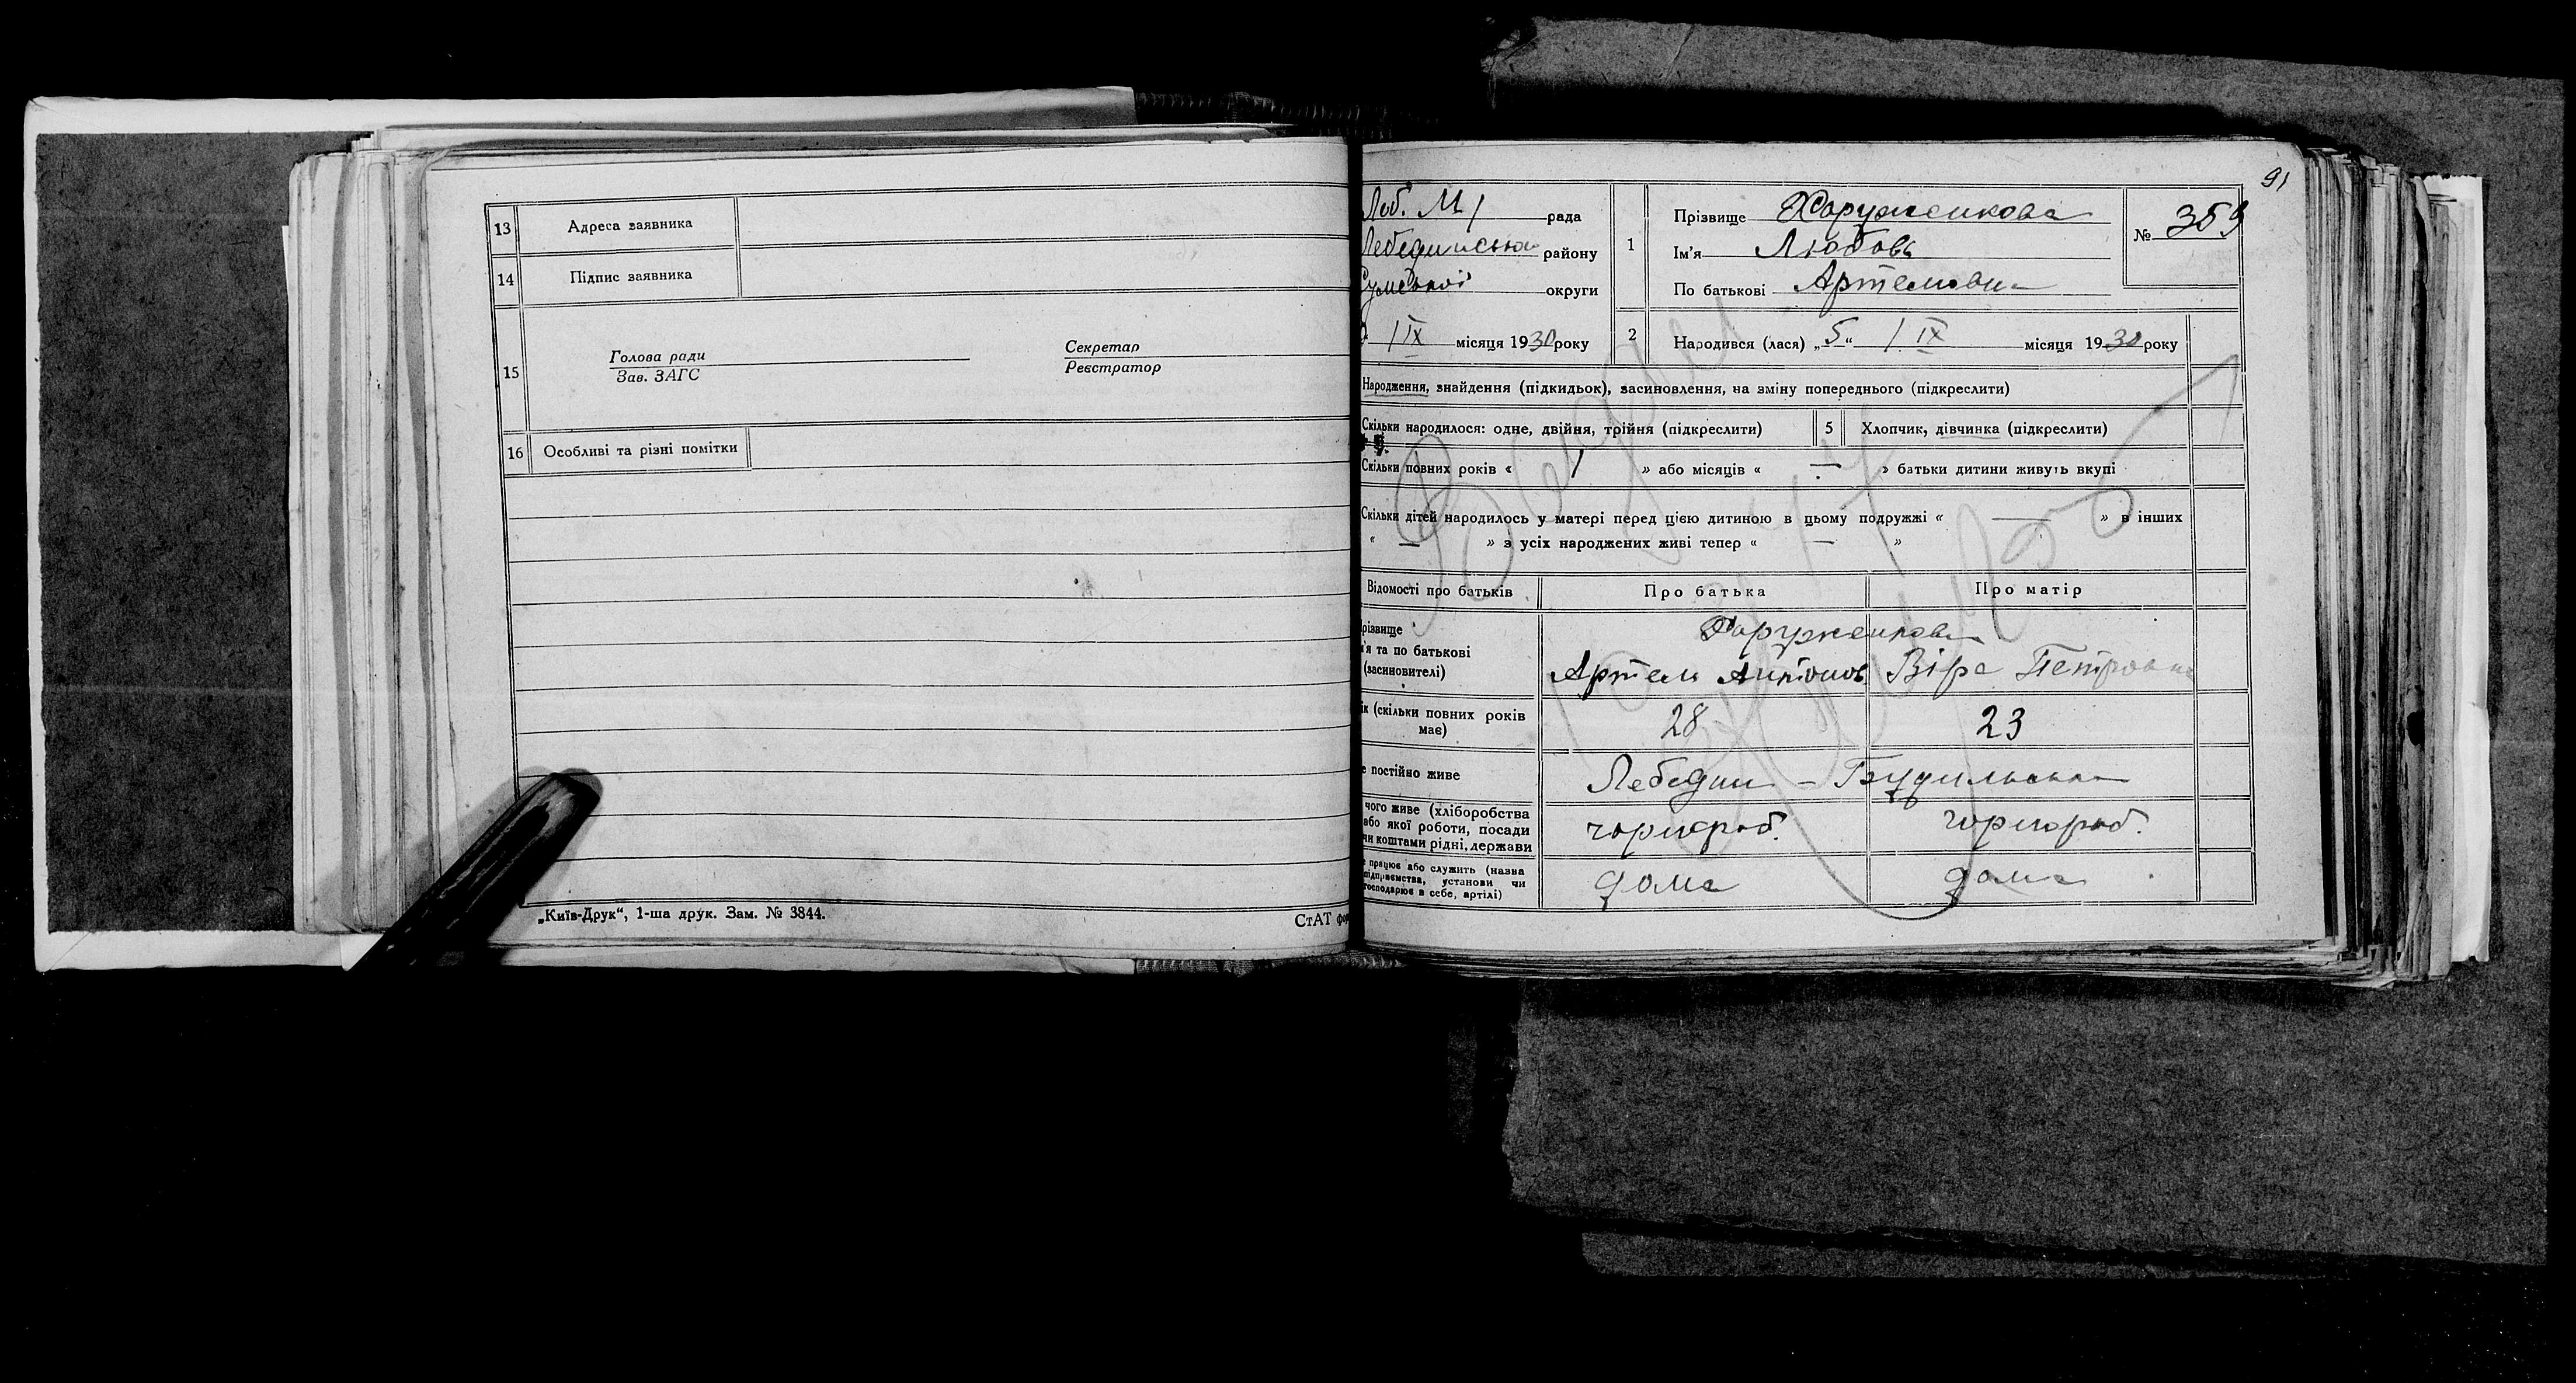 13 Адреса заявника
14 Підпис заявника
15 Голова ради
Зав. ЗАГС
Секретар
Реєстратор
16 Особливі та різні помітки
„Київ-Друк“, 1-ша друк. Зам. № 3844.
СтАТ
91
Леб. М рада
Лебединська району
Сумської округи
IX місяця 1930 року
1 Прізвище Харуженкова
Ім'я Любовь
По батькові Артемовна
№ 359
2 Народився (лася) „5“ IX місяця 1930 року
Народження, знайдення (підкидьок), засиновлення, на зміну попереднього (підкреслити)
Скільки народилося: одне, двійня, трійня (підкреслити) 5 Хлопчик, дівчинка (підкреслити)
Скільки повних років « 1 » або місяців « — » батьки дитини живуть вкупі
Скільки дітей народилось у матері перед цією дитиною в цьому подружжі « — » в інших
« — » з усіх народжених живі тепер « — »
Відомості про батьків Про батька Про матір
різвище
'я та по батькові
(засиновителі)
Харуженкова
Артем Антонов Віра Петровна
ік (скільки повних років
має)
28 23
е постійно живе Лебедин - Будильська
чого живе (хліборобства
або якої роботи, посади
чи коштами рідні, держави
чорнороб. чорнороб.
працює або служить (назва
підприємства, установи чи
господарює в себе, артілі)
дома дома